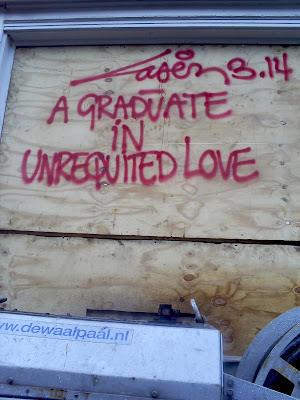 Laser 3.14
A GRADUATE
IN
UNREQUITED LOVE
www.dewaalpaal.nl